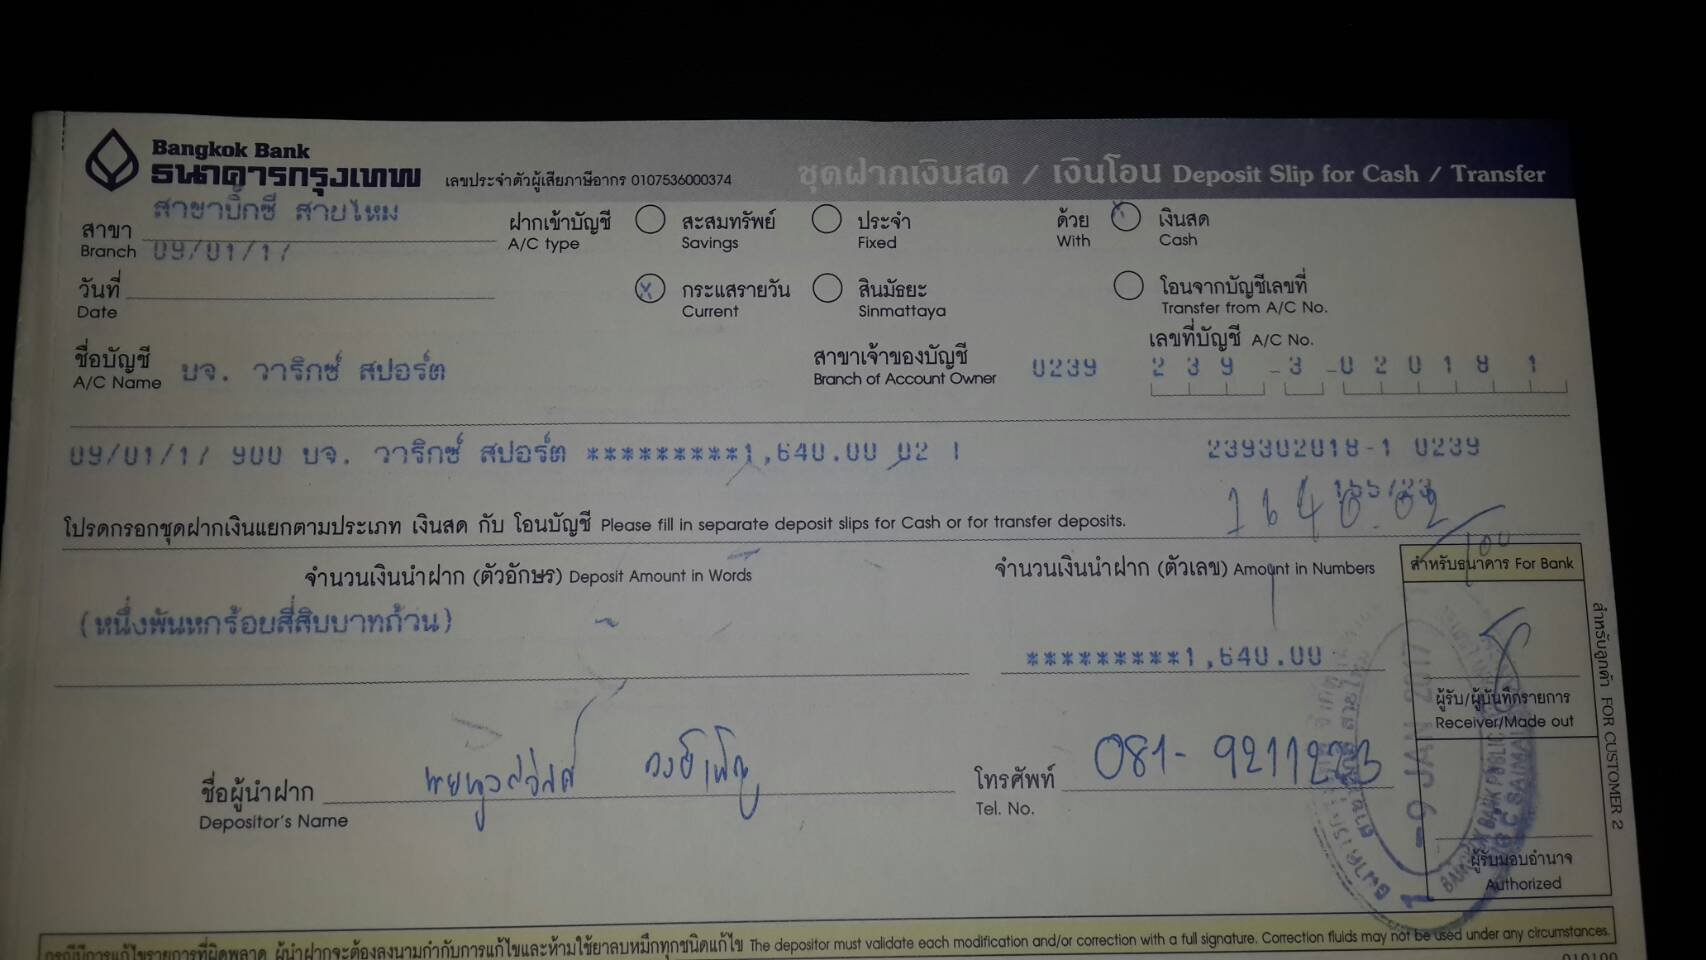 Bangkok Bank
ธนาคารกรุงเทพ
เลขประจำตัวผู้เสียภาษีอากร 0107536000374
ชุดฝากเงินสด / เงินโอน Deposit Slip for Cash / Transfer
สาขา
Branch
สาขาบิ๊กซี สายไหม
09/01/17
ฝากเข้าบัญชี
A/C type
สะสมทรัพย์
Savings
ประจำ
Fixed
ด้วย
With
x
เงินสด
Cash
วันที่
Date
x
กระแสรายวัน
Current
สินมัธยะ
Sinmattaya
โอนจากบัญชีเลขที่
Transfer from A/C No.
ชื่อบัญชี
A/C Name
บจ. วาริกซ์ สปอร์ต
สาขาเจ้าของบัญชี
Branch of Account Owner
0239
เลขที่บัญชี A/C No.
2 3 9 - 3 - 0 2 0 1 8 1
09/01/17 900 บจ. วาริกซ์ สปอร์ต *********1,640.00 02 1 239302018-1 0239
1640.02
โปรดกรอกชุดฝากเงินแยกตามประเภท เงินสด กับ โอนบัญชี Please fill in separate deposit slips for Cash or for transfer deposits.
จำนวนเงินนำฝาก (ตัวอักษร) Deposit Amount in Words
จำนวนเงินนำฝาก (ตัวเลข) Amount in Numbers
สำหรับธนาคาร For Bank
(หนึ่งพันหกร้อยสี่สิบบาทถ้วน)
*********1,640.00
ผู้รับ/ผู้บันทึกรายการ
Receiver/Made out
ชื่อผู้นำฝาก
Depositor's Name
โทรศัพท์
Tel. No.
081-9211223
ผู้รับมอบอำนาจ
Authorized
สำหรับลูกค้า FOR CUSTOMER 2
กรณีมีการแก้ไขรายการที่ผิดพลาด ผู้นำฝากจะต้องลงนามกำกับการแก้ไขและห้ามใช้ยาลบหมึกทุกชนิดแก้ไข The depositor must validate each modification and/or correction with a full signature. Correction fluids may not be used under any circumstances.